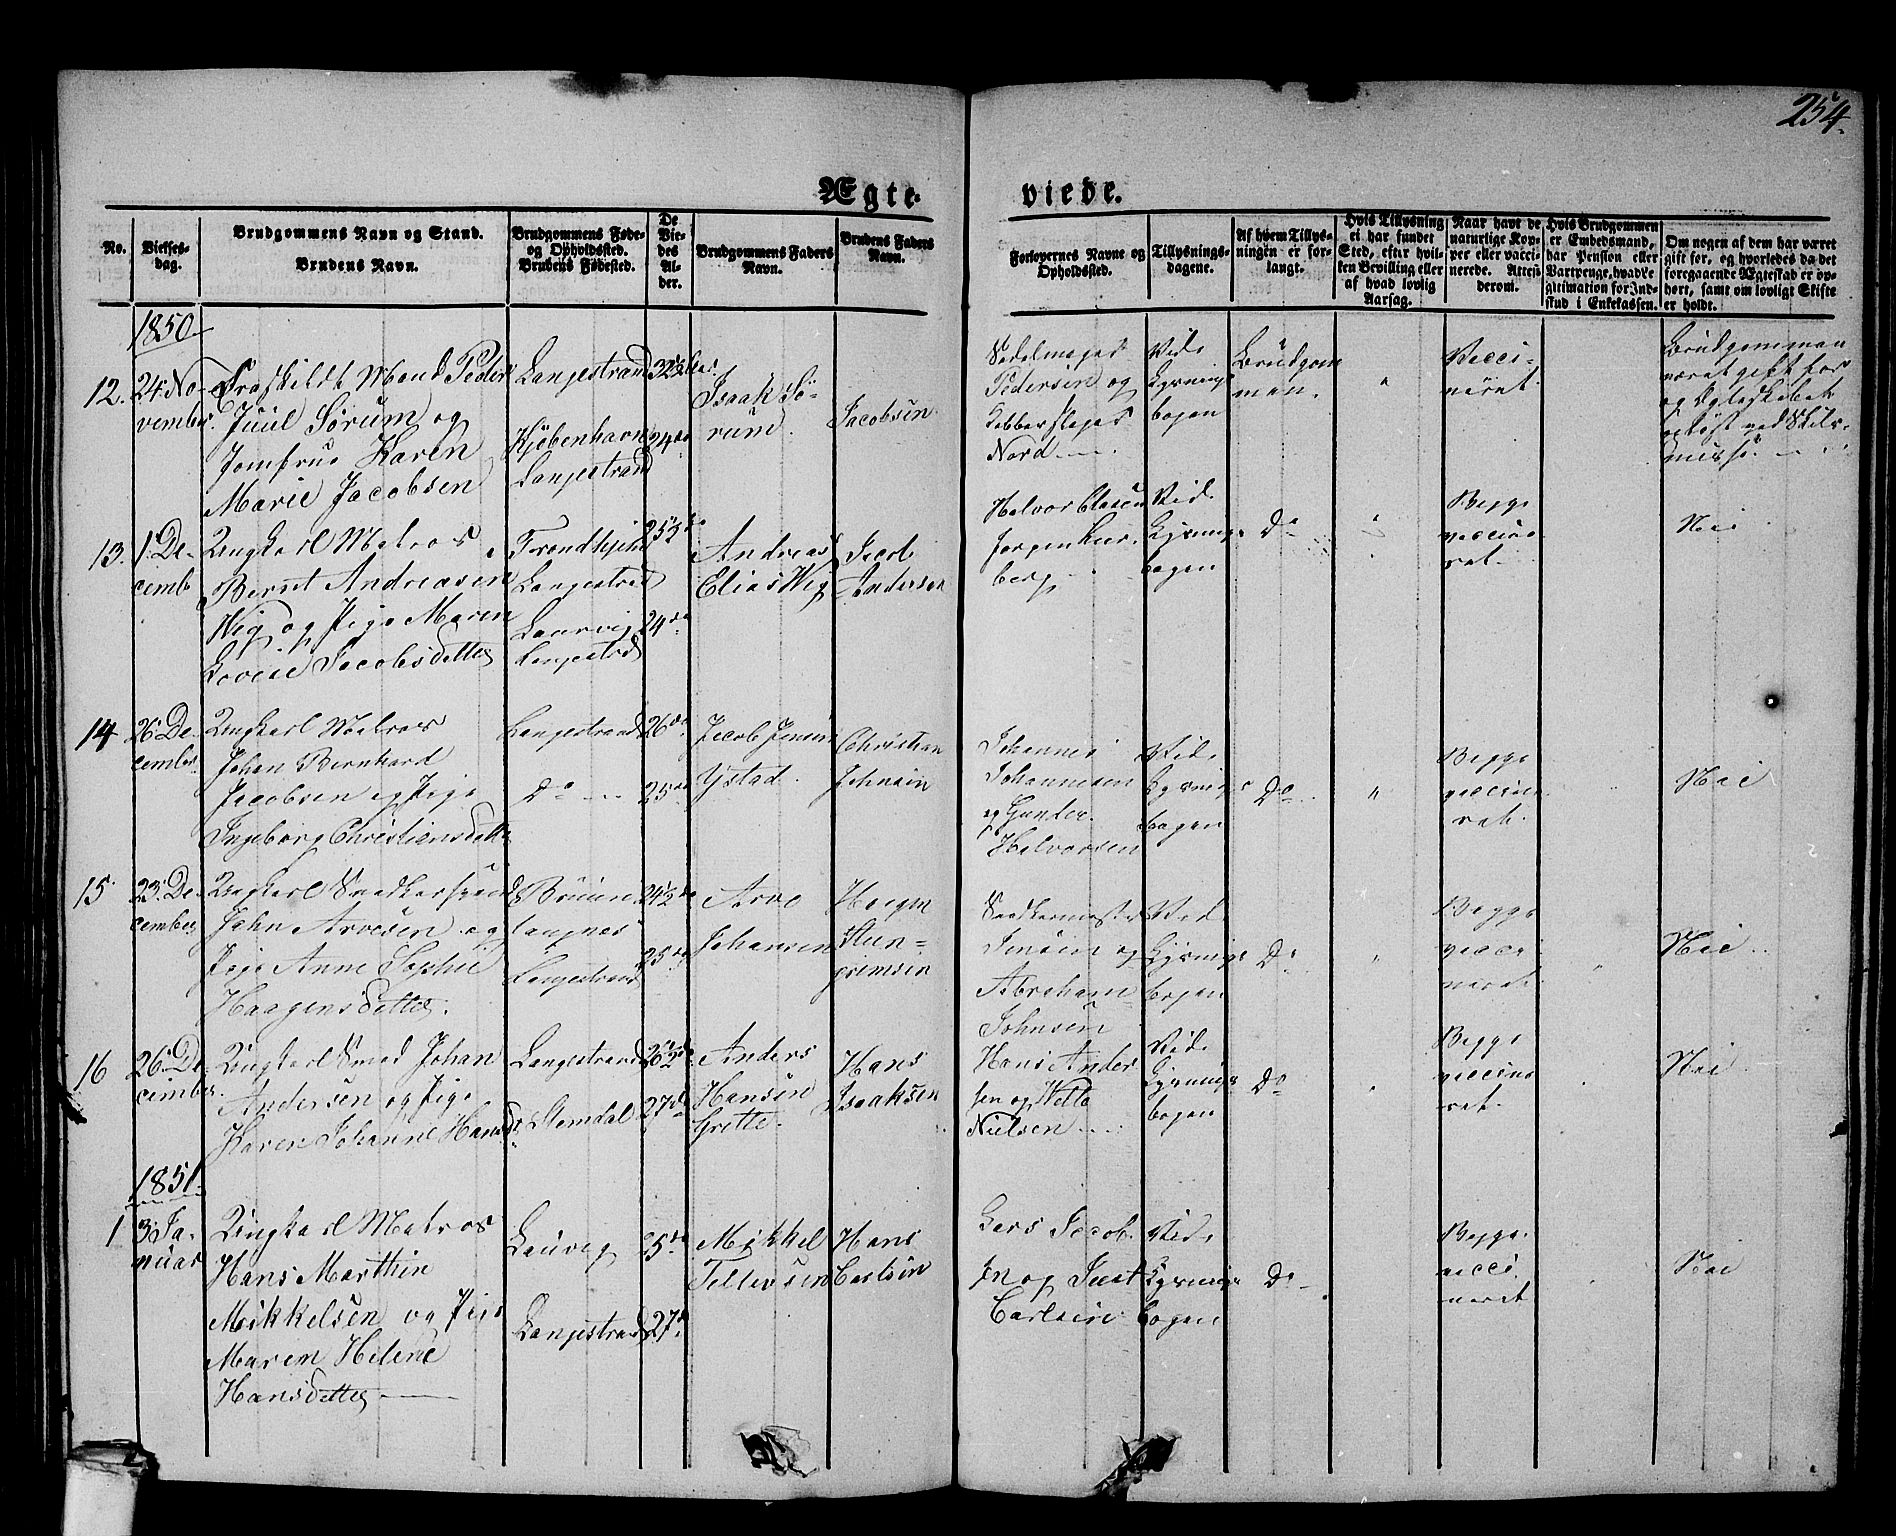 254.
Ægte-
viede.
No.
Vielses-
dag.
Brudgommens Navn og Stand.
Brudens Navn.
Brudgommens Føde-
og Opholdssted.
Brudens Fødested.
De
Vie-
des
Al-
der.
Brudgommens Faders
Navn.
Brudens Faders
Navn.
Forlovernes Navne og
Opholdssted.
Tillysnings-
dagene.
Af hvem Tillys-
ningen er for-
langt.
Hvis Tillysning
ei har fundet
Sted, efter hvil-
ken Bevilling eller
af hvad lovlig
Aarsag.
Naar havt de
naturlige Kop-
per eller vacci-
nerede. Attest
derom.
Hvis Brudgommen
er Embedsmand,
har Pension eller
Vartpenge, hvad Le-
gitimation for Ind-
skud i Enkekassen.
Om nogen af dem har været
gift før, og hvorledes da det
foregaaende Ægteskab er op-
hørt, samt om lovligt Skifte
er holdt.
1850
12.
24. No-
vember
Fraskildt Mand Peder
Juul Sørum og
Jomfrue Karen
Marie Jacobsen
Langestrand
Kjøbenhavn
Langestrand
32½ Aar
24 do
Isaak Sø-
rum.
Jacobsen
Sadelmager
Pedersen og
Kobberslager
Nord
Vide
Lysnings
bogen
Brudgom
men.
"
Vacci-
neret.
Brudgommen
været gift før
og Egteskabet
opløst ved Skils-
misse.
13.
1. De-
cemb
Ungkarl Matros
Bernt Andreasen
Wig og Pige Maren
Lovise Jacobsdatter
Trondhjem
Langestrand
Laurvig
Langestrd
25½ do
24 do
Andreas
Elias Wig
Jacob
Andersen
Halvor Olasen
Jørgen
berg
Vide
Lysnings
bogen
Do
"
Begge
vaccine
ret.
Nei
14
26. De-
cember
Ungkarl Matros
Johan Bernhard
Jacobsen og Pige
Ingeborg Christiansdatter
Langestrand
Do
26 do
25 do
Jacob Jensen
Ystad.
Christian
Johnsen
Johannes
Johannesen
og Gunder
Halvorsen
Vide
Lysnings
bogen
Do
"
Begge
vaccine
ret.
Nei
15.
23. De-
cember
Ungkarl Snedkersvend
John Arvesen og
Pige Anne Sophie
Haagensdatter.
Bruun
langnes
Langestrand
24½ do
25 do
Arve
Johansen
Haagen
Stein-
grimsen
Snedkermester
Jensen og
Abraham
Johnsen
Vide
Lysnings
bogen
Do
"
Begge
vacci
neret
"
Nei
16
26. De-
cember
Ungkarl Smed Johan
Andersen og Pige
Karen Johanne Hansdt.
Langestrand
Slemdal
26½ do
27 do
Anders
Hansen
Grette.
Hans
Isaaksen
Hans Ander
sen og
Nielsen
Vide
Lysnings
bogen
Do
Begge
vaccine
ret.
Nei
1851
1
3. Ja-
nuar
Ungkarl Matros
Hans Marthin
Mikkelsen og Pige
Maren Helene
Hansdatter
Laurvig
Langestrand
25 do
27 do
Mikkel
Tellefsen
Hans
Carlsen
Lars Jacob
sen og
Carlsen
Vide
Lysnings
bogen
Do
Begge
vacci
neret
Nei